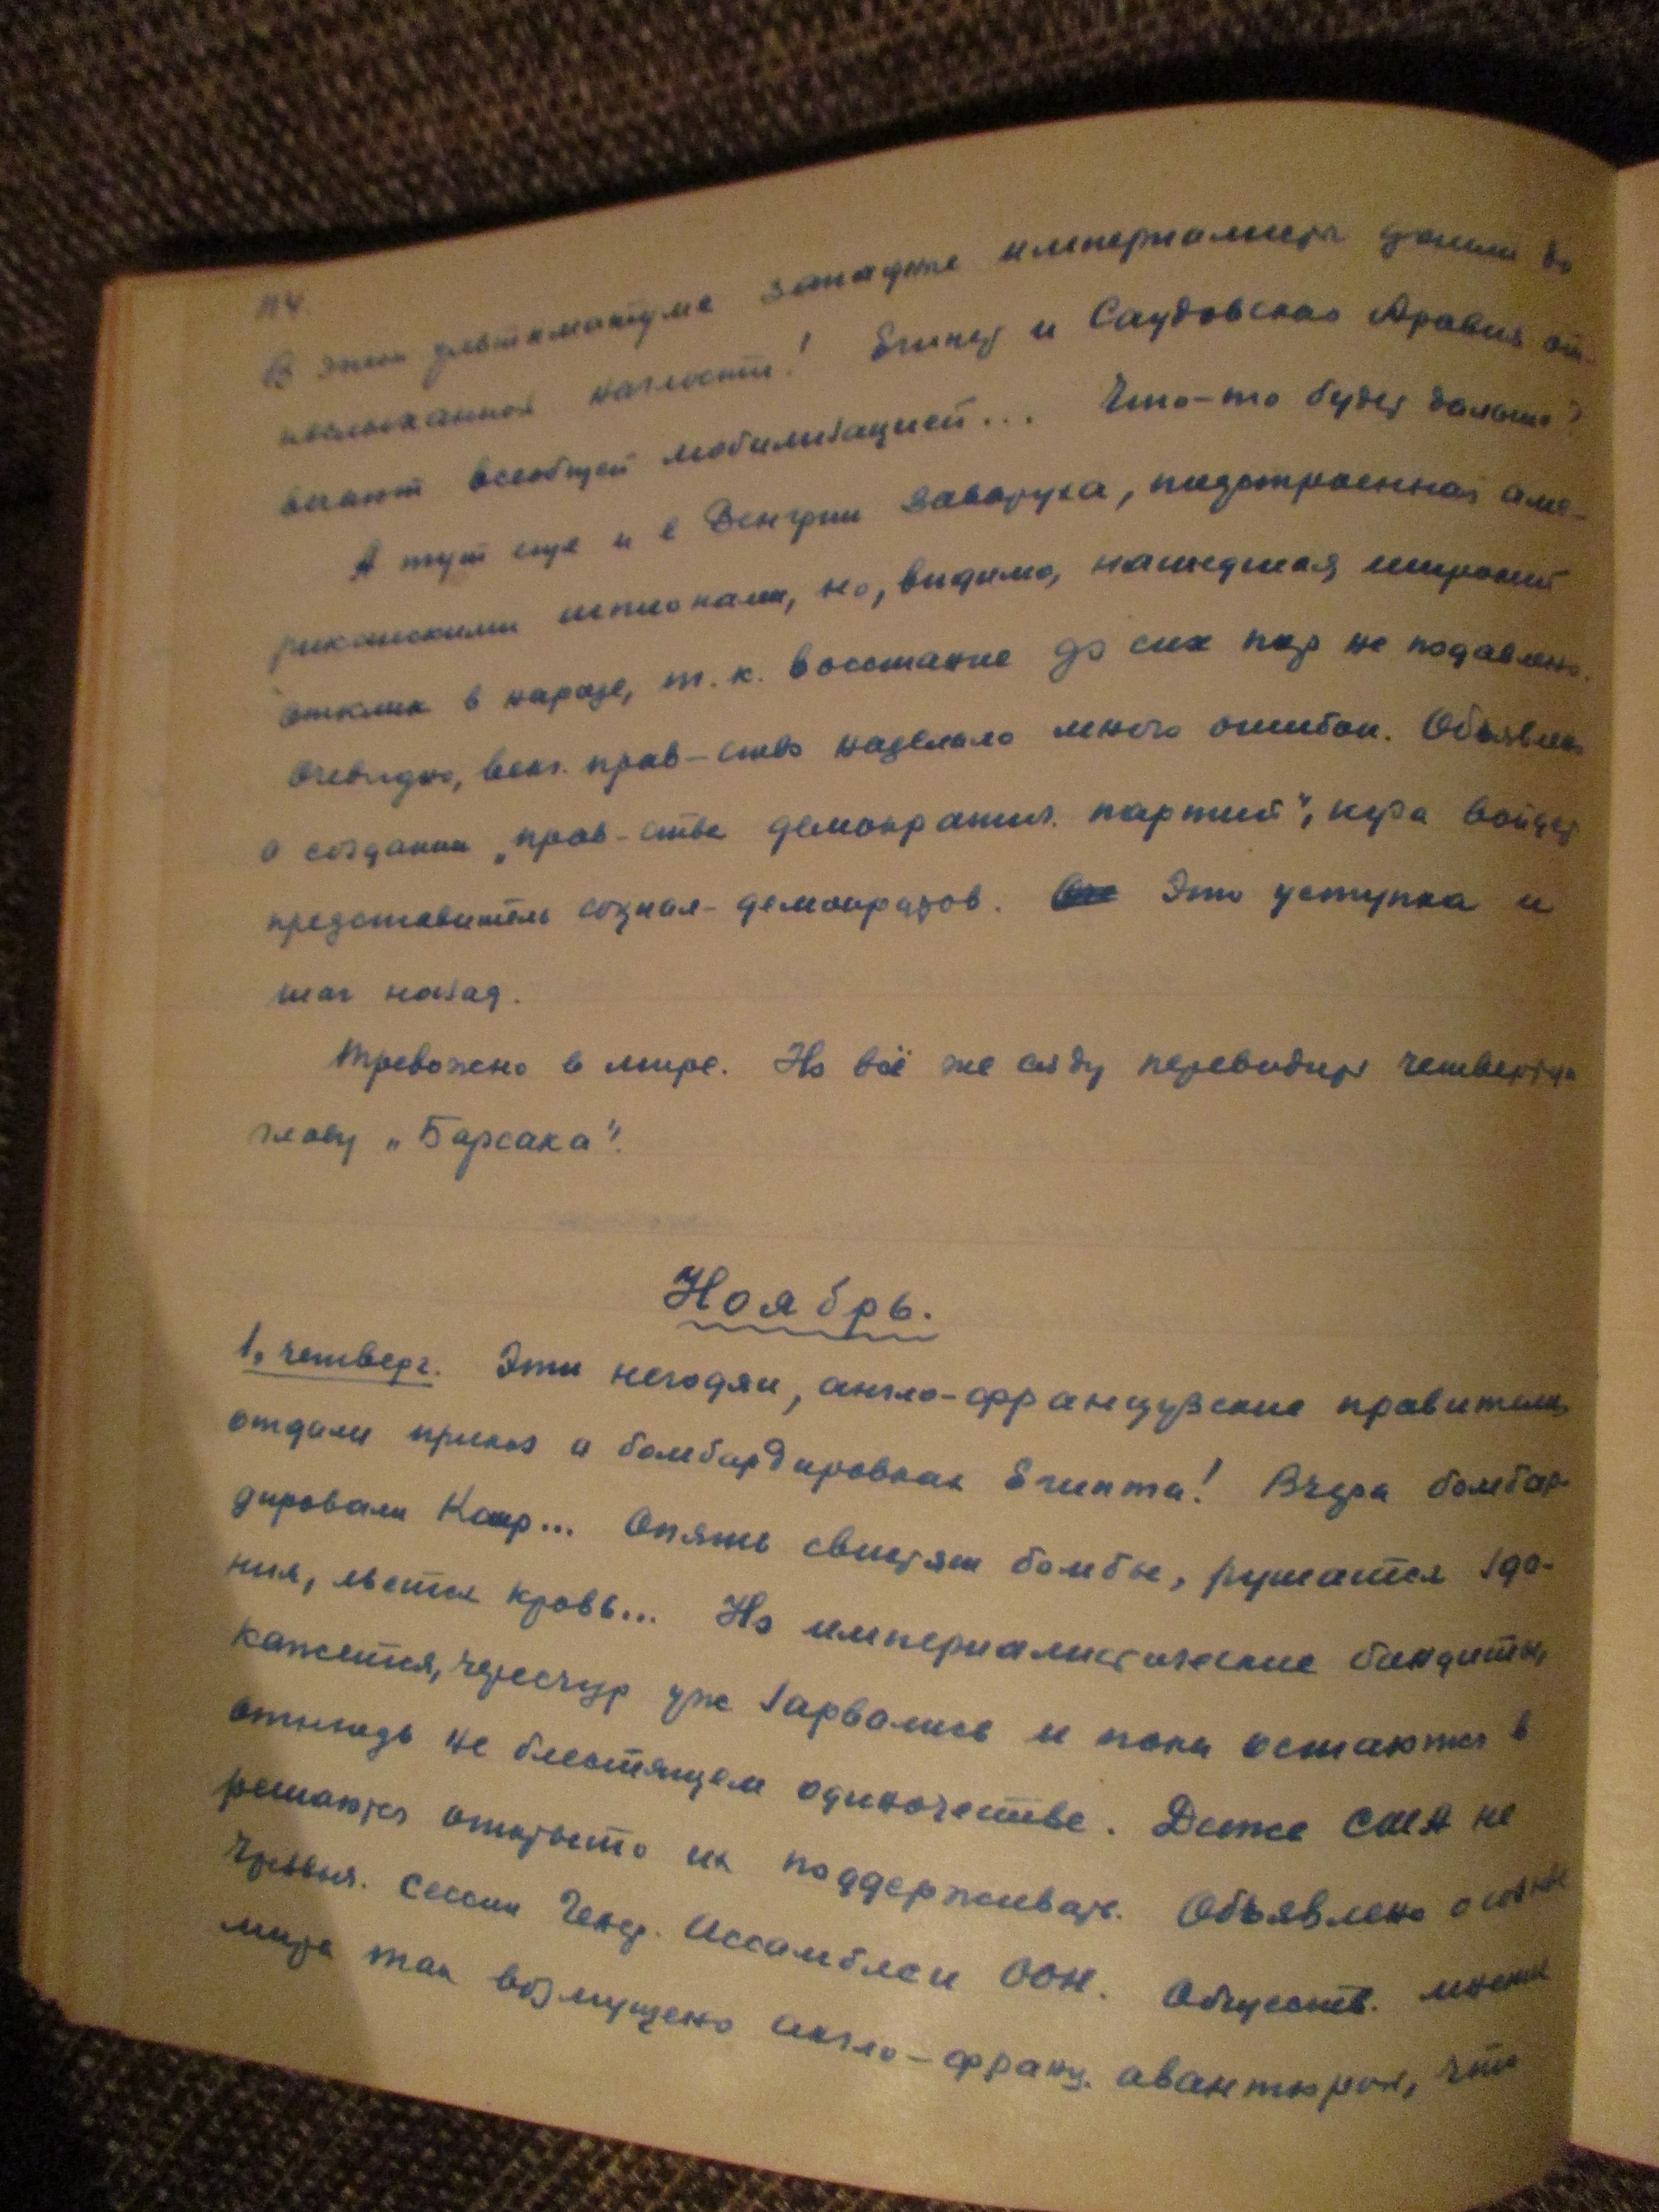 114.
В этом ультиматуме западные империалисты дошли до
неслыханной наглости! Египет и Саудовская Аравия от-
вечают всеобщей мобилизацией... Что-то будет дальше?
А тут еще и в Венгрии заваруха, подстроенная аме-
риканскими шпионами, но, видимо, нашедшая широкий
отклик в народе, т. к. восстание до сих пор не подавлено.
Очевидно, венг. прав-ство наделало много ошибок. Объявлено
о создании „прав-ства демократич. партий", куда войдет
представитель социал-демократов. Это уступка и
шаг назад.
Тревожно в мире. Но всё же сяду переводить четвертую
главу „Барсака".
Ноябрь.
1, четверг. Эти негодяи, англо-французские правители,
отдали приказ о бомбардировках Египта! Вчера бомбар-
дировали Каир... Опять свистят бомбы, рушатся зда-
ния, льется кровь... Но империалистические бандиты,
кажется, чересчур уж зарвались и пока остаются в
отнюдь не блестящем одиночестве. Даже США не
решаются открыто их поддерживать. Объявлено о созыве
Чрезвыч. сессии Генер. Ассамблеи ООН. Обществ. мнение
мира так возмущено англо-франц. авантюрой, что